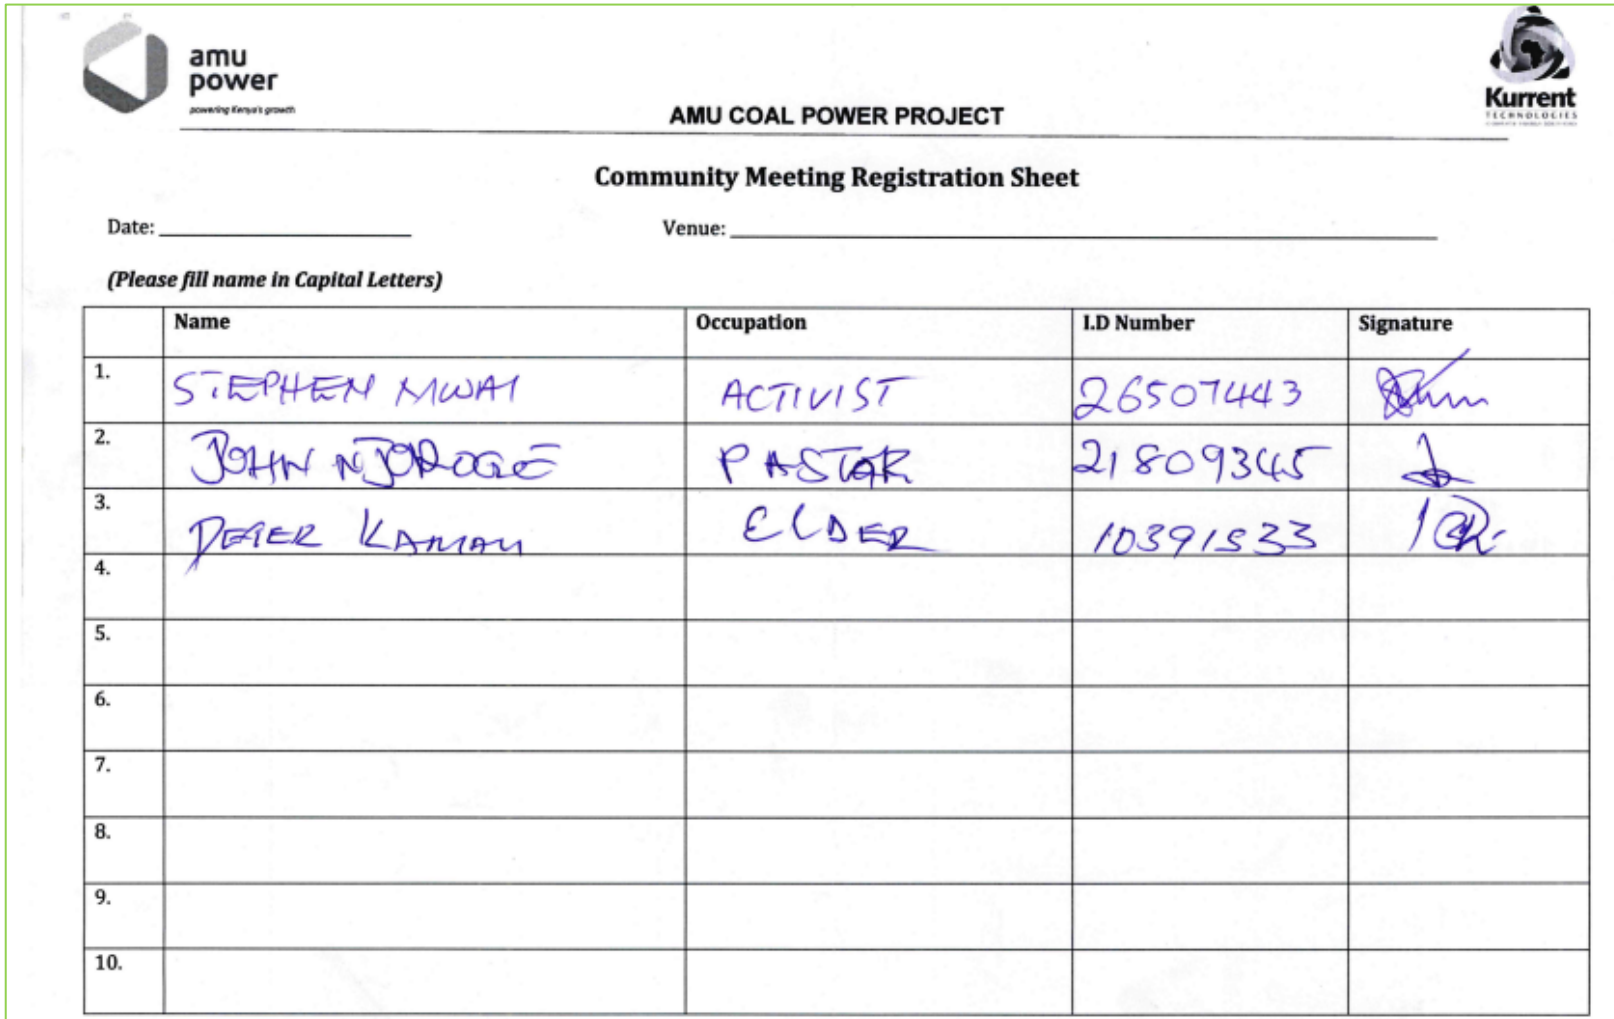 amu
power
powering Kenya's growth
Kurrent
TECHNOLOGIES
AMU COAL POWER PROJECT
Community Meeting Registration Sheet
Date: Venue:
(Please fill name in Capital Letters)
Name Occupation I.D Number Signature
1. STEPHEN MWAI ACTIVIST 26507443
2. JOHN NJOROGE PASTOR 21809345
3. PETER KAMAU ELDER 10391533
4.
5.
6.
7.
8.
9.
10.